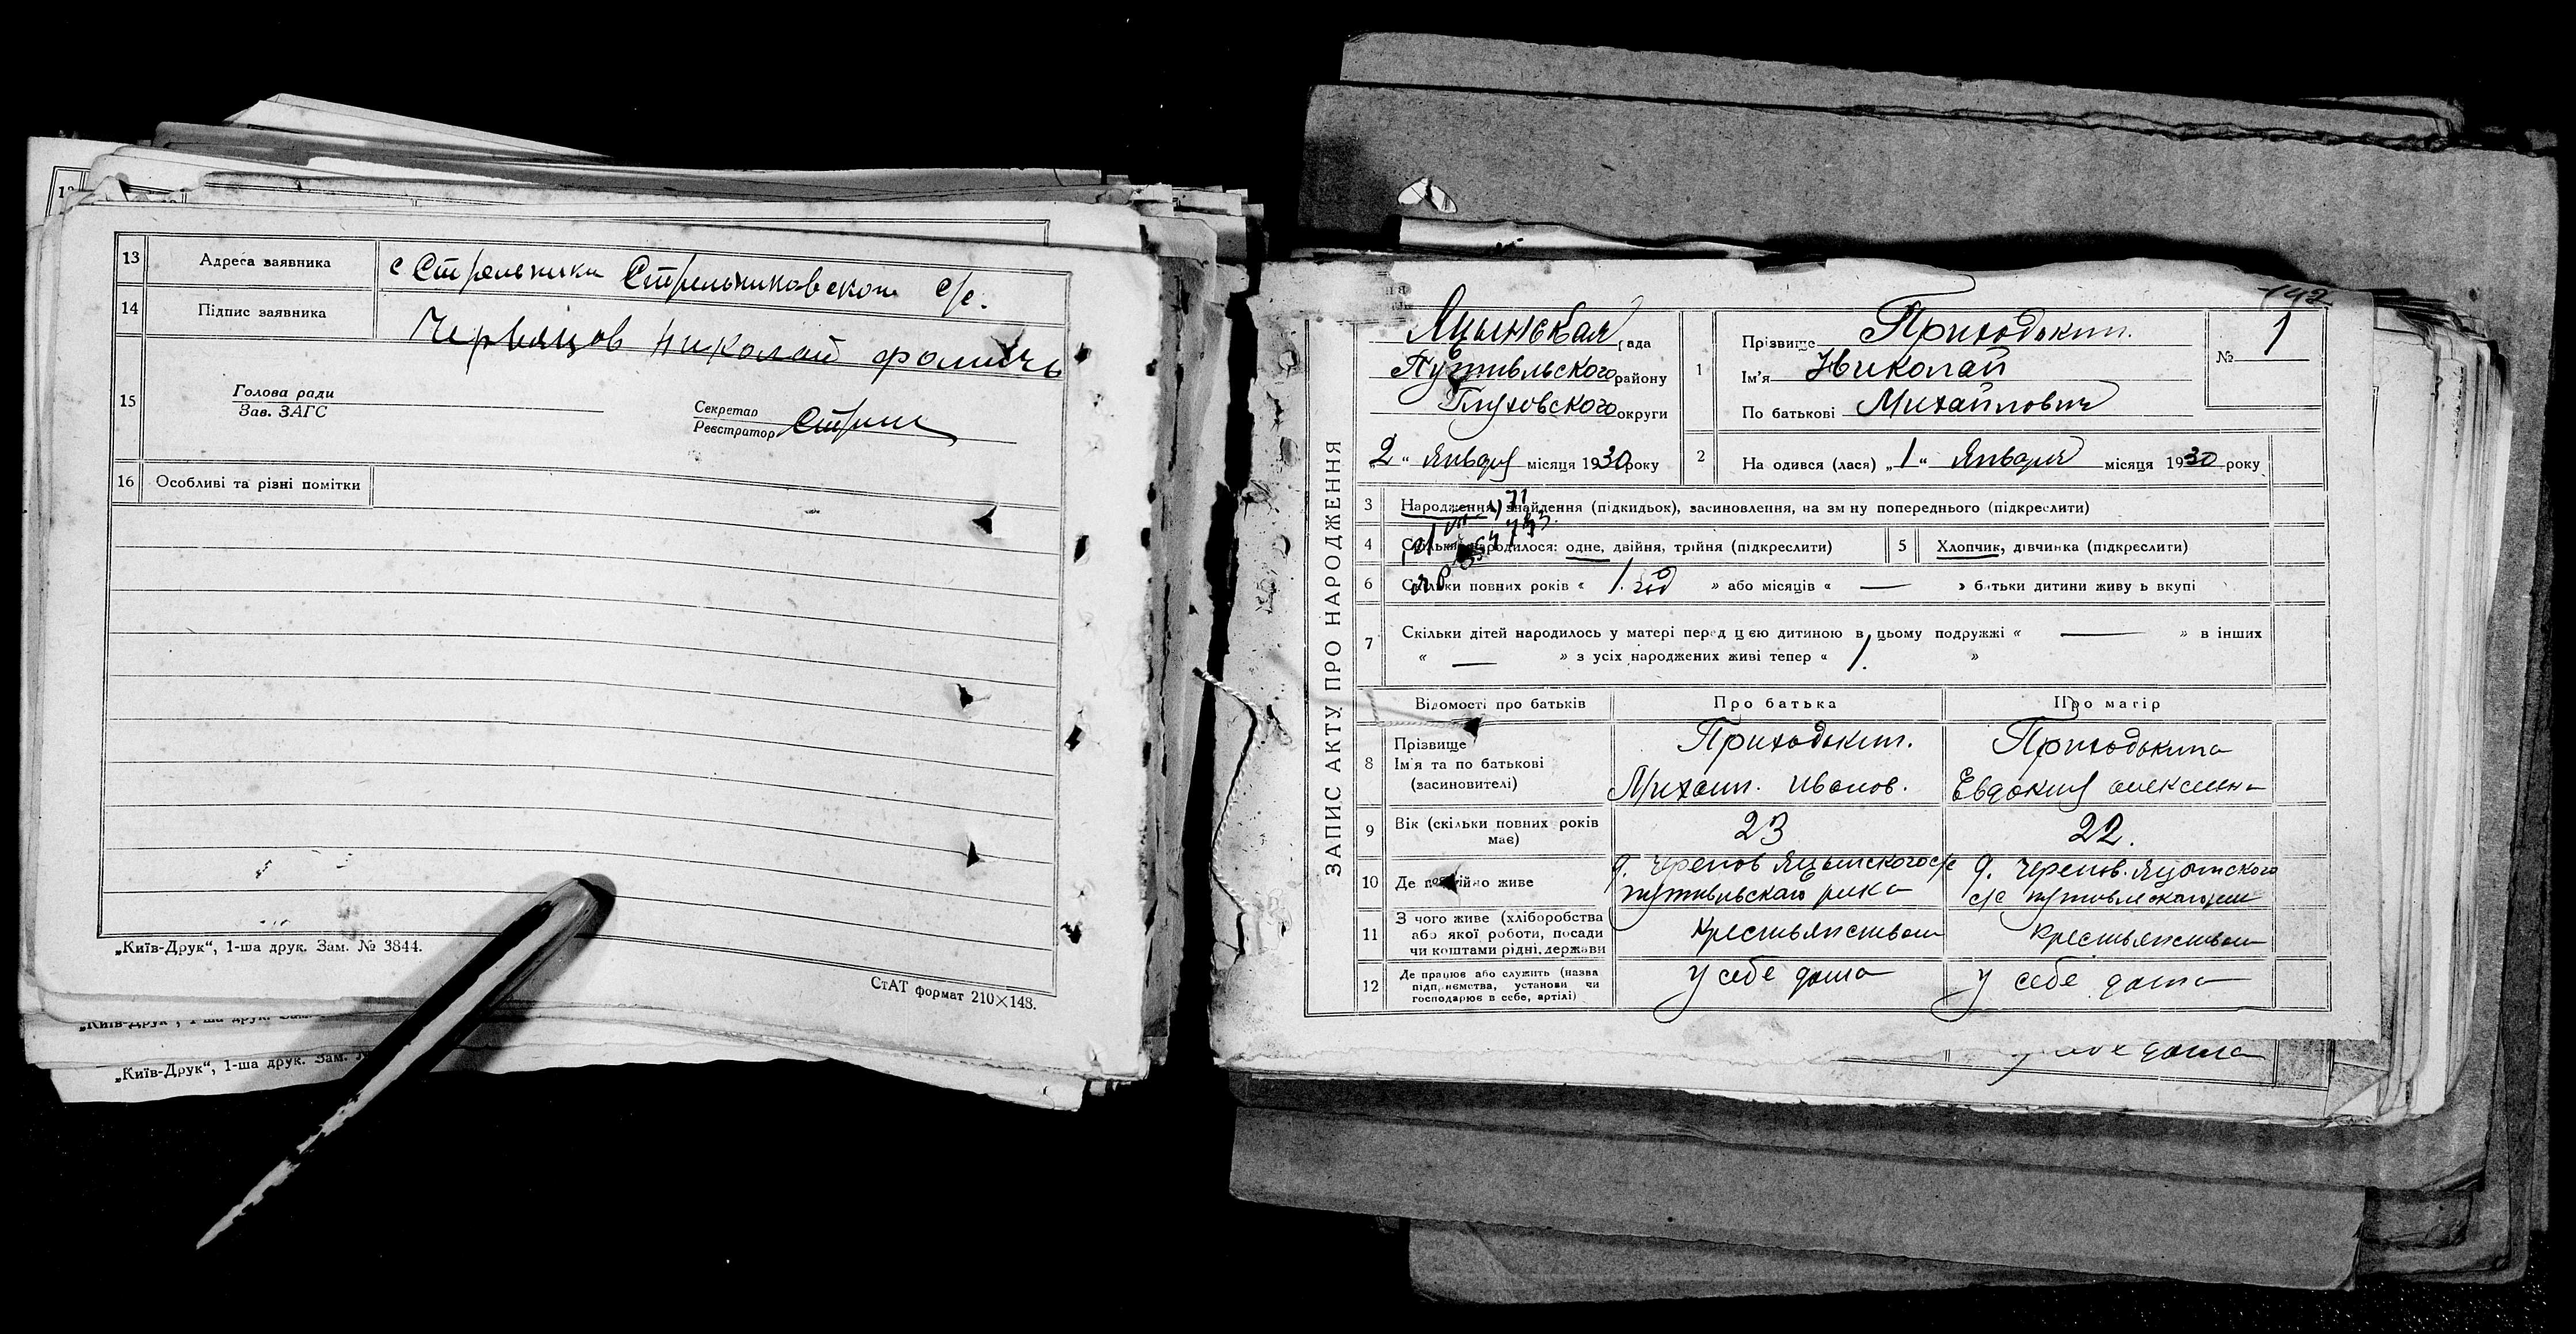 13 Адреса заявника с Стрельники Стрельниковском с/с.
14 Підпис заявника
Червяцов Николай Фомичь
15 Голова ради
Зав. ЗАГС
Секретар
Реєстратор
16 Особливі та різні помітки
„Київ-Друк“, 1-ша друк. Зам. № 3844.
СтАТ формат 210×148.
„Київ-Друк“, 1-ша друк. Зам.
„Київ-Друк“, 1-ша друк. Зам.
142
ЗАПИС АКТУ ПРО НАРОДЖЕННЯ
Яцынская рада
Путивльского району
Глуховского округи
„2“ Января місяця 1930 року
1 Прізвище Приходькин.
Ім'я Николай
По батькові Михайлович
№ 1
2 На одився (лася) „1“ Января місяця 1930 року
3 Народження, знайдення (підкидьок), засиновлення, на зм ну попереднього (підкреслити)
4 Скільки народилося: одне, двійня, трійня (підкреслити)
5 Хлопчик, дівчинка (підкреслити)
6 Скільки повних років « 1 год » або місяців « — » батьки дитини живу ь вкупі
7 Скільки дітей народилось у матері перед цєю дитиною в цьому подружжі « — » в інших
« — » з усіх народжених живі тепер « 1. »
Відомості про батьків Про батька Про матір
8 Прізвище
Ім'я та по батькові
(засиновителі)
Приходькин.
Михаил. Иванов.
Приходькина
Евдокия
9 Вік (скільки повних років має) 23 22.
10 Де постійно живе
д. Черепов Яцынского с/с
Путивльскаго
д. Черепов. Яцынского
с/с
11 З чого живе (хліборобства
або якої роботи, посади
чи коштами рідні, держави
Крестьянством
Крестьянством
12 Де працює або служить (назва
підприємства, установи чи
господарює в себе, артілі)
у себе дома
у себе дома
дома